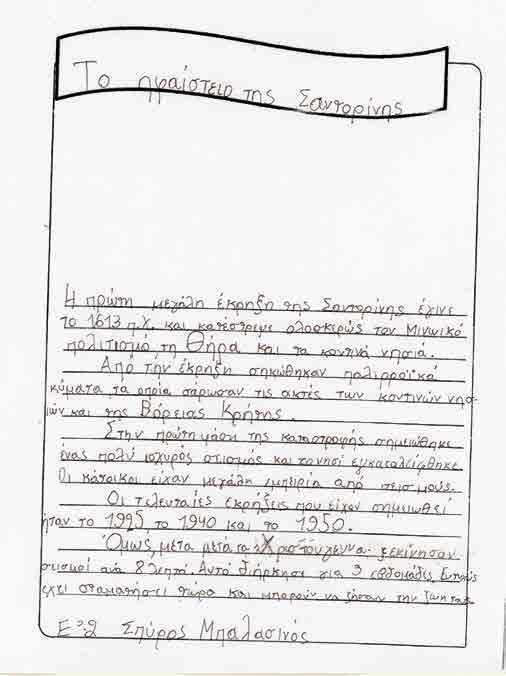 Το ηφαίστειο της Σαντορίνης
Η πρώτη μεγάλη έκρηξη της Σαντορίνης έγινε
το 1613 π.Χ. και κατέστρεψε ολοσχερώς τον Μινωικό
πολιτισμό, τη Θήρα και τα κοντινά νησιά.
Από την έκρηξη σηκώθηκαν παλιρροϊκά
κύματα τα οποία σάρωσαν τις ακτές των κοντινών νησ-
ιών και της Βόρειας Κρήτης.
Στην πρώτη φάση της καταστροφής σημειώθηκε
ένας πολύ ισχυρός σεισμός και το νησί εγκαταλείφθηκε.
Οι κάτοικοι είχαν μεγάλη εμπειρία από σεισμούς.
Οι τελευταίες εκρήξεις που είχαν σημειωθεί
ήταν το 1925 το 1940 και το 1950.
Όμως, μετα μετά τα Χριστούγεννα ξεκίνησαν
σεισμοί ανά 8 λεπτά. Αυτό διήρκησε για 3 εβδομάδες. Ευτυχώς
έχει σταματήσει τώρα και μπορούν να ζήσουν την ζωή τους.
Ε'2 Σπύρος Μπαλασινός